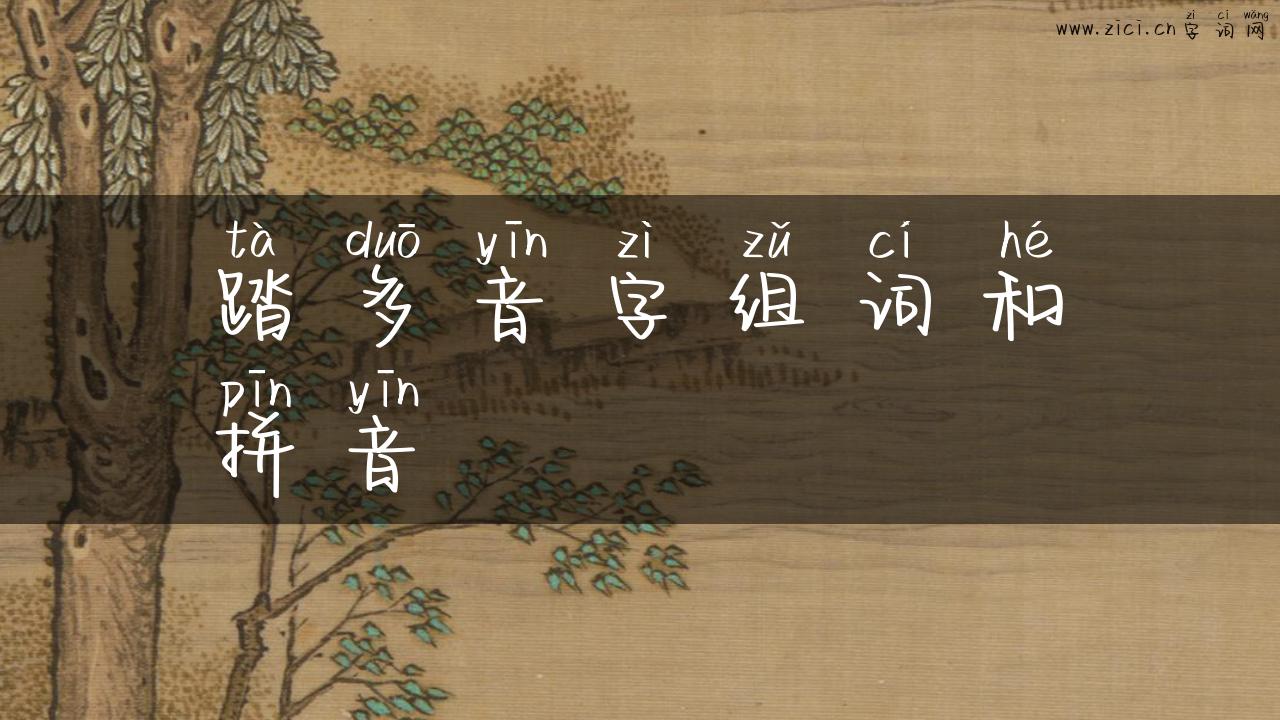 zì cí wǎng
www.zici.cn 字词网
tà duō yīn zì zǔ cí hé
踏多音字组词和
pīn yīn
拼音